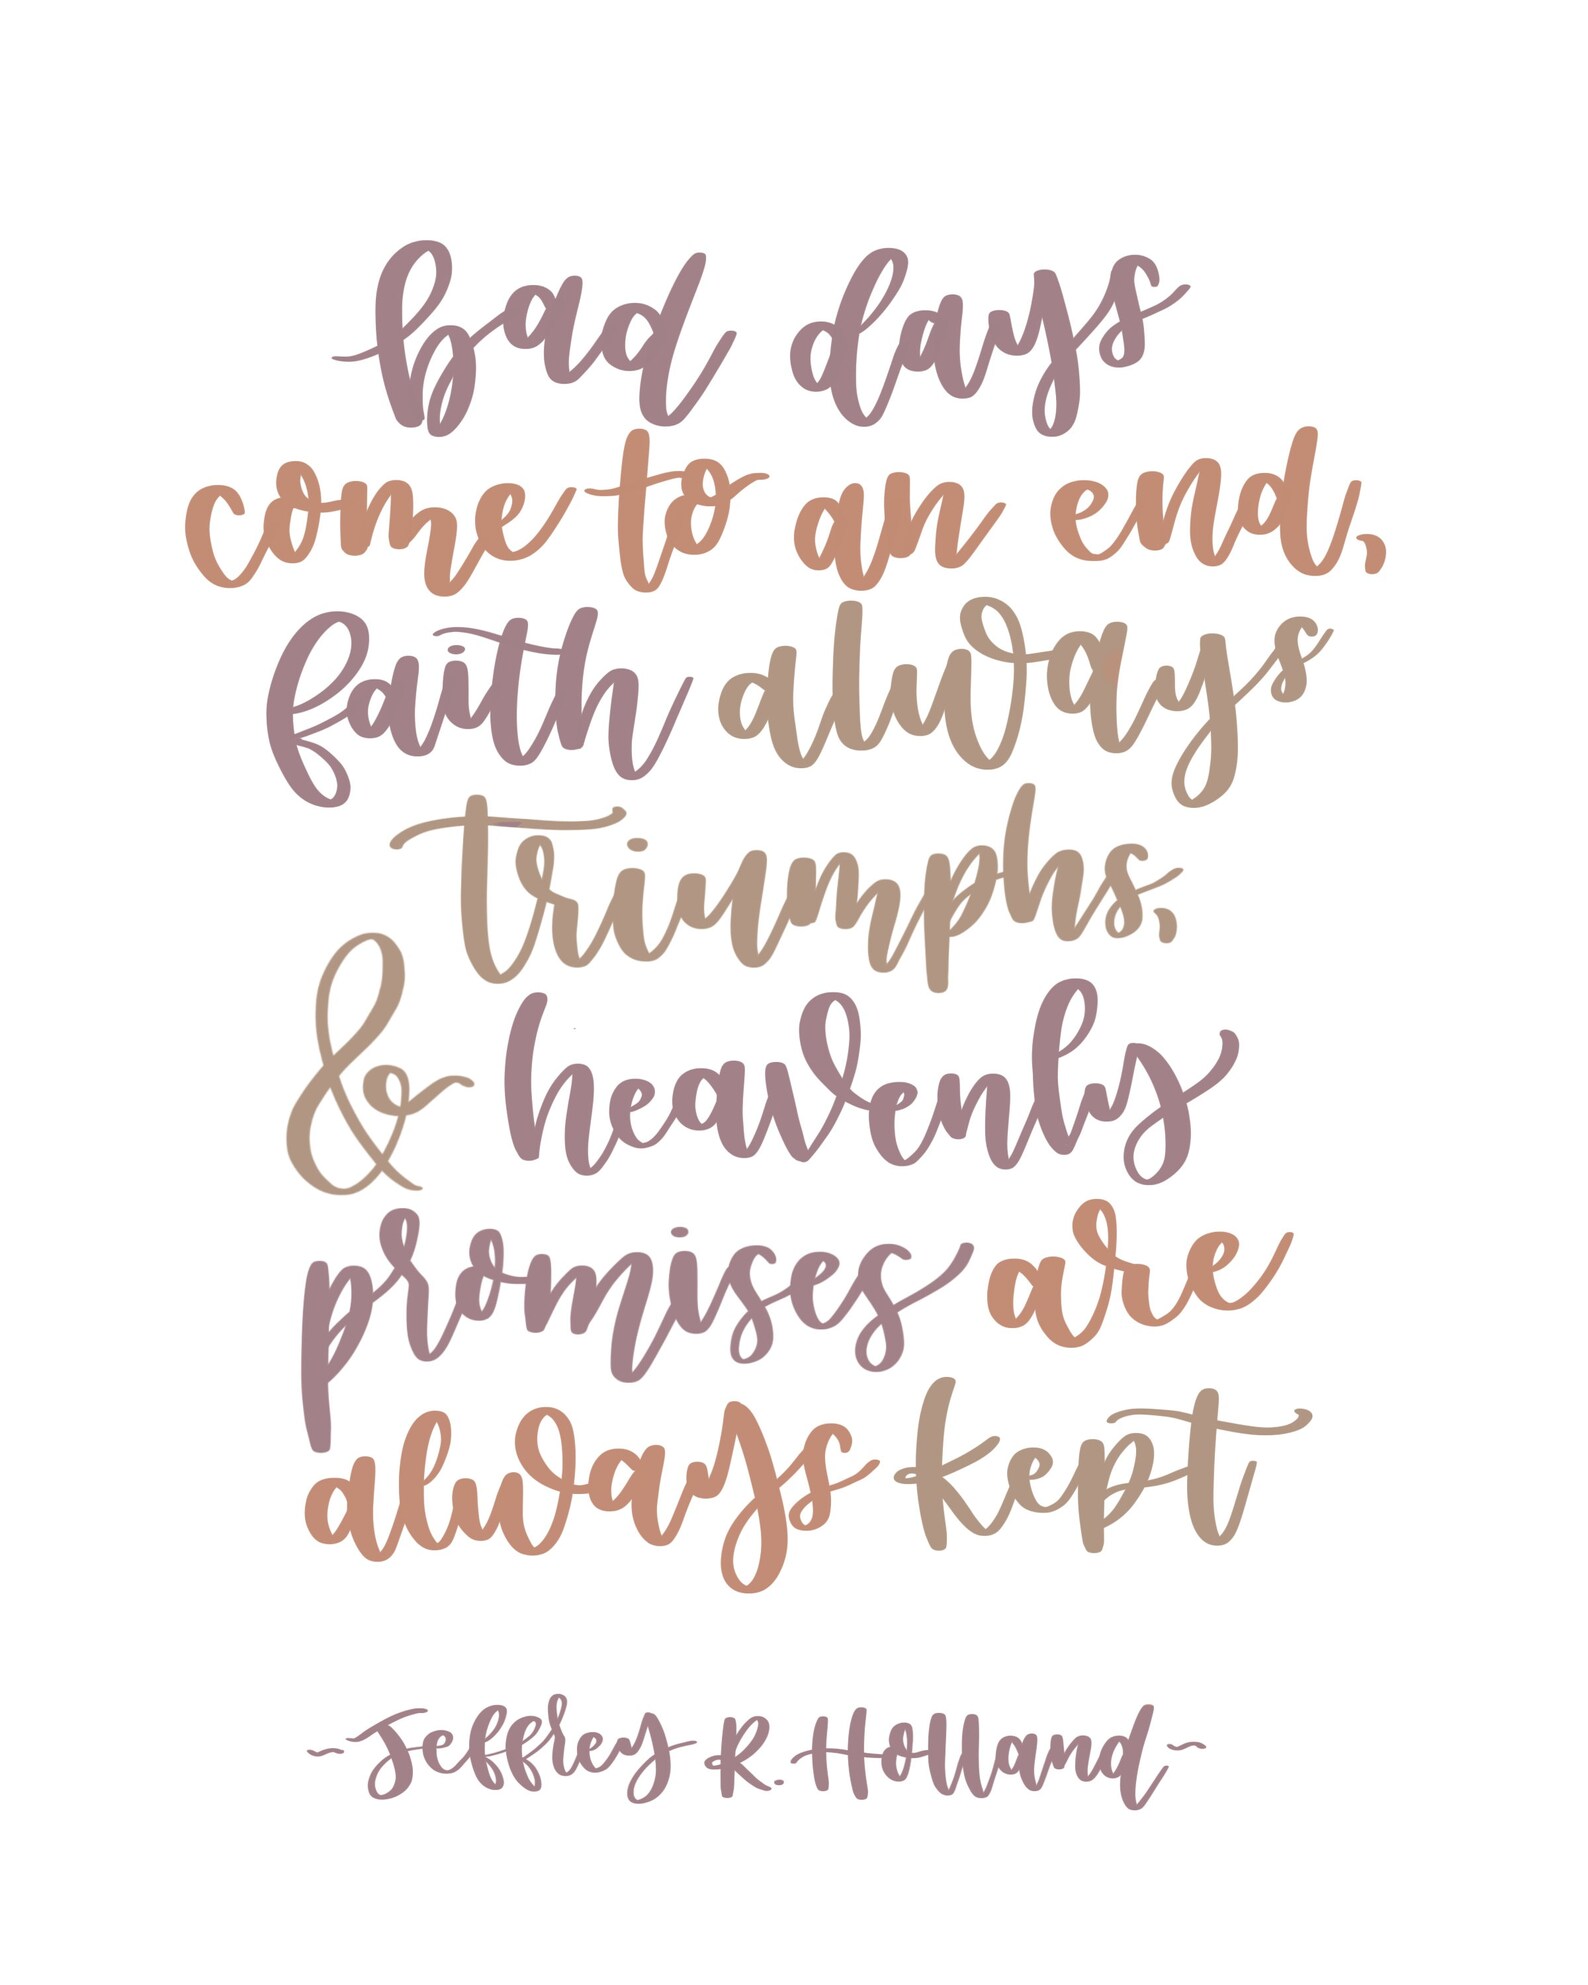 bad days
come to an end,
faith always
triumphs,
& heavenly
promises are
always kept
~Jeffrey R. Holland~